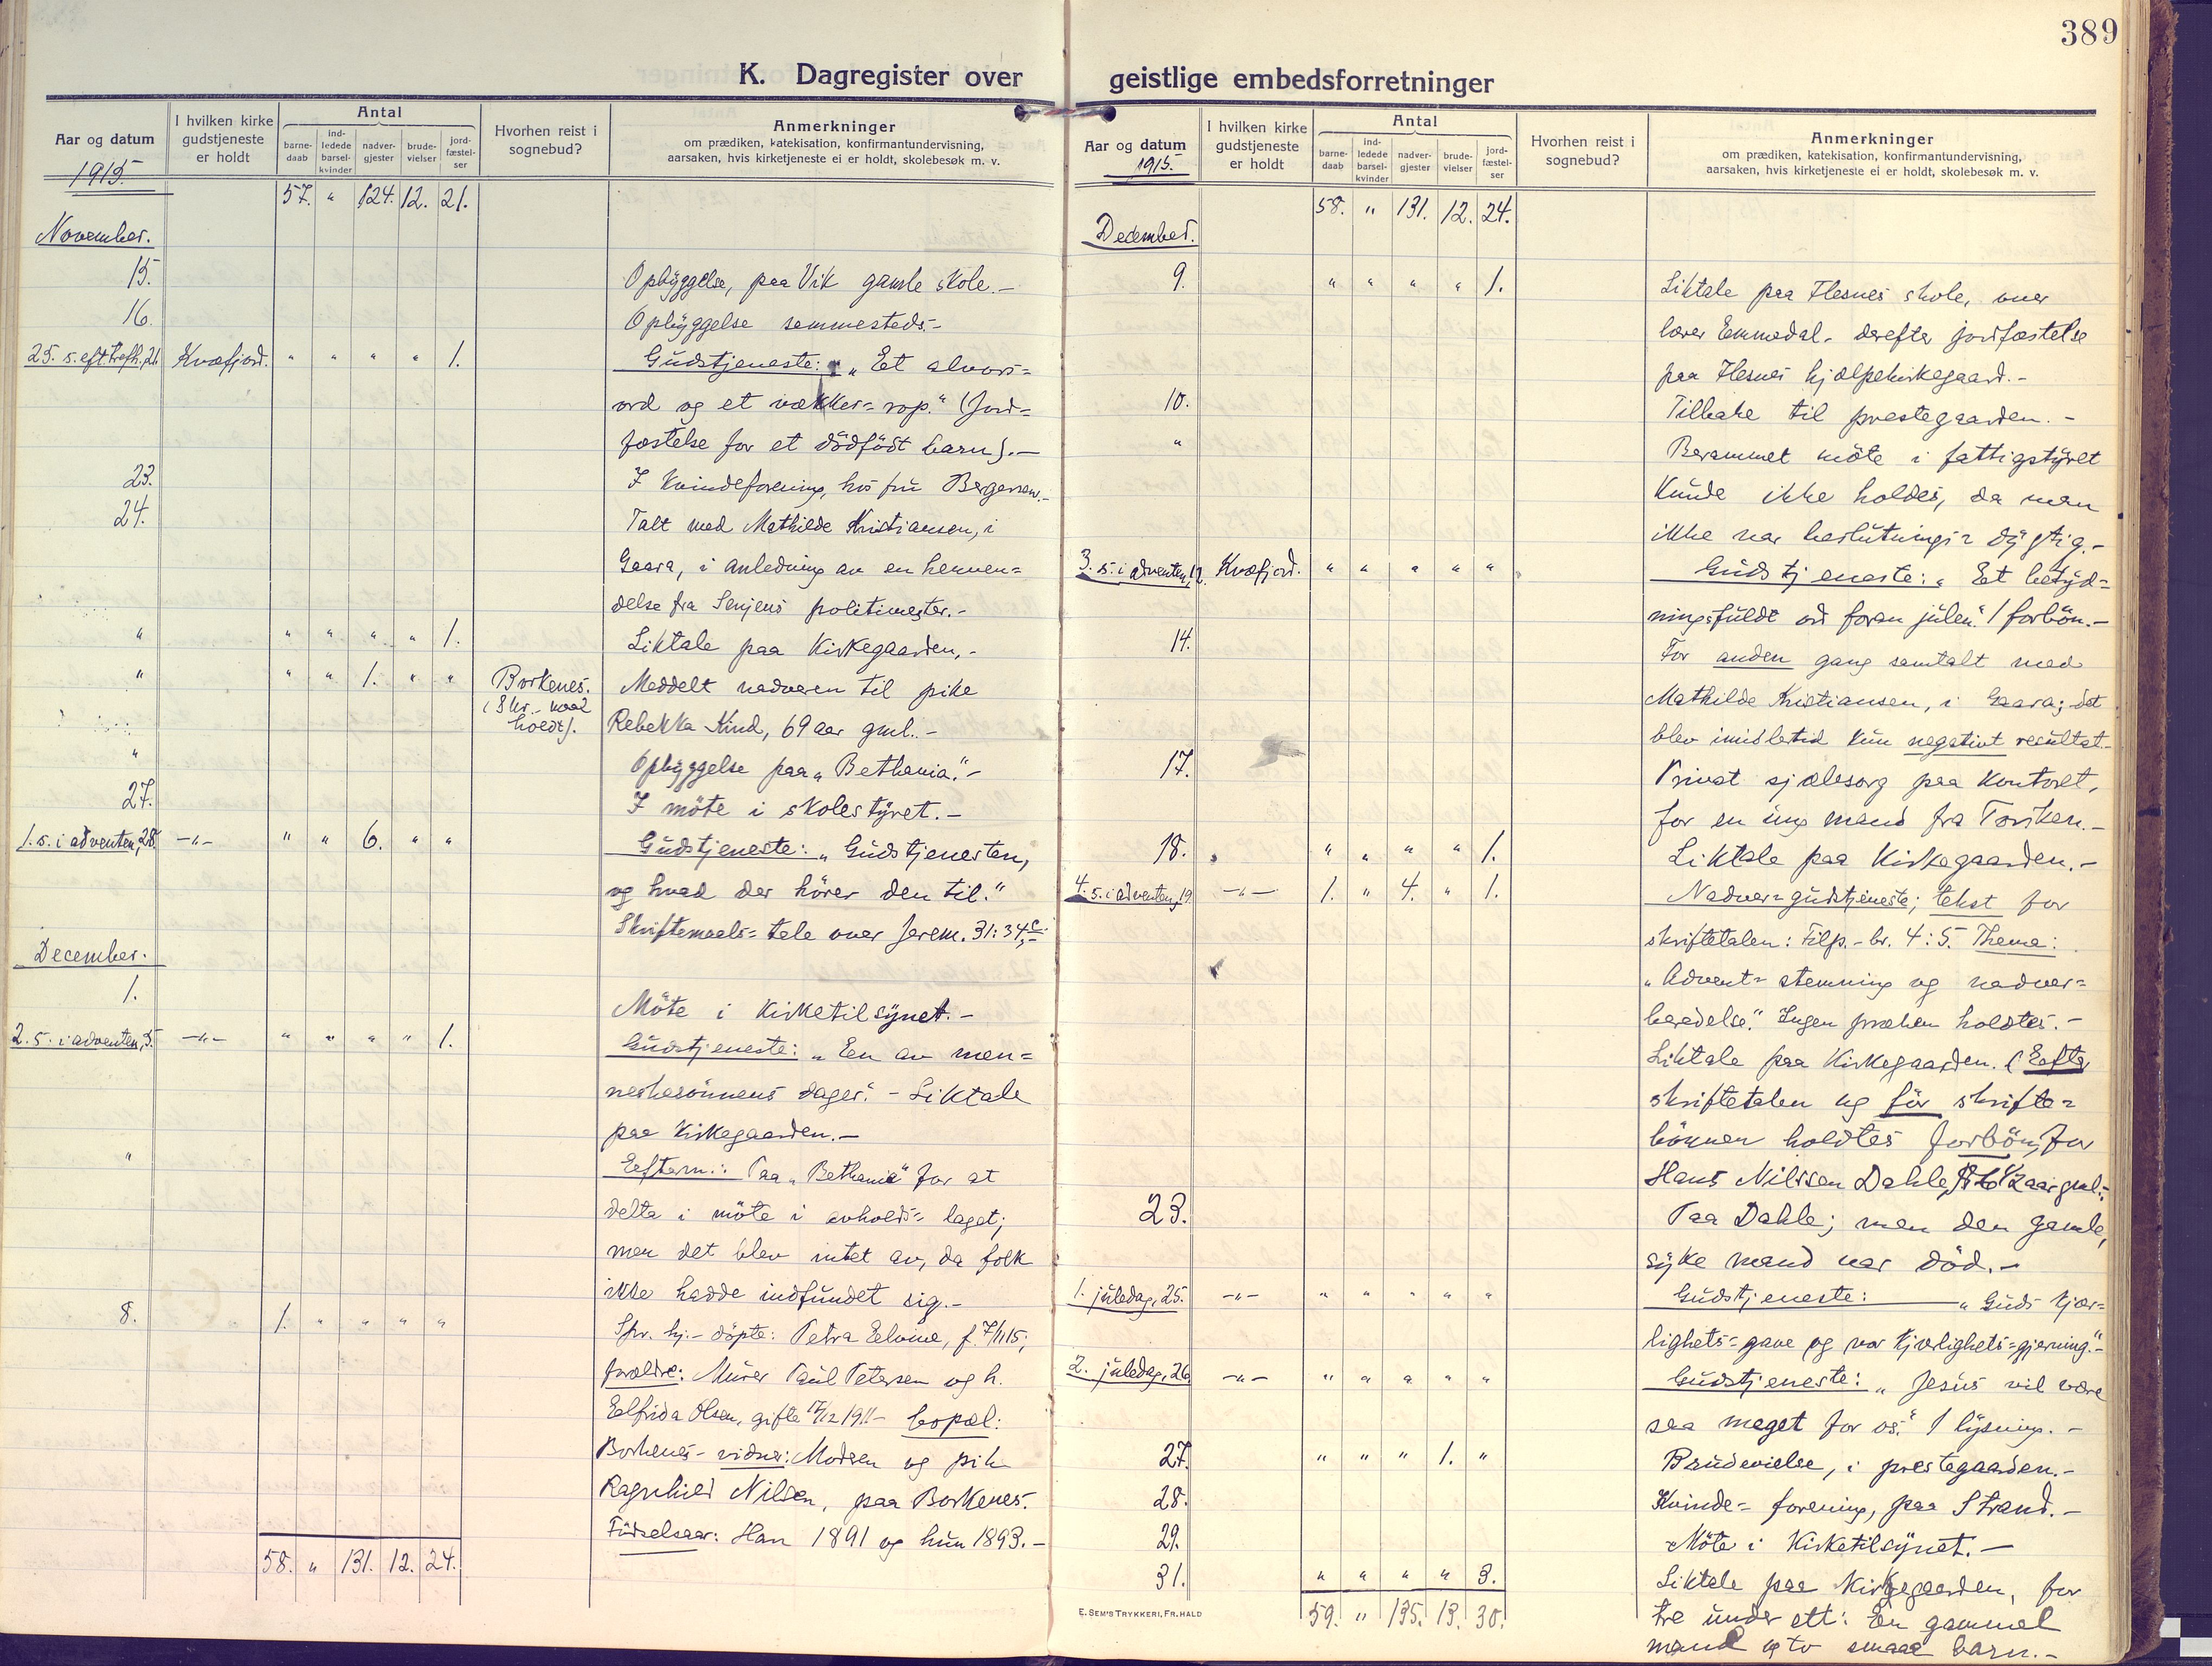 389
K. Dagregister over geistlige embedsforretninger
Aar og datum
I hvilken kirke gudstjeneste er holdt
Antal
barne-daab
ind-ledede barsel-kvinder
nadver-gjester
brude-vielser
jord-fæstel-ser
Hvorhen reist i sognebud?
Anmerkninger
om prædiken, katekisation, konfirmantundervisning,
aarsaken, hvis kirketjeneste ei er holdt, skolebesøk m. v.
1915.
57. " 124. 12. 21.
November.
15. Opbyggelse, paa Vik gamle skole.-
16. Opbyggelse sammesteds.-
25. s. eft. trefh., 21. Kvæfjord. " " " " 1. Gudstjeneste: "Et alvors=
ord og et vækker=rop." (Jord=
fæstelse for et dödfödt barn).-
23. I Kvindeforening, hos fru Bergersen.-
24. Talt med Mathilde Kristiansen, i
Gaara, i anledning av en henven=
delse fra Senjens politimester.-
" " " " " 1. Liktale paa Kirkegaarden.-
" " " 1. " " Borkenes. Meddelt nadveren til pike
(Skr.-maal
holdt). Rebekka Kind, 69 aar gml.-
" Opbyggelse paa "Bethania."-
27. I möte i skolestyret.-
1. s. i adventen, 28. -"- " " 6. " " Gudstjeneste: "Gudstjenesten,
og hvad der hörer den til."
Skriftemaals=tale over Jerem. 31:34c.-
December.
1. Möte i Kirketilsynet.-
2. s. i adventen, 5. -"- " " " " 1. Gudstjeneste: "Een av men=
neskesönnens dager." - Liktale
paa Kirkegaarden.-
" Eeftern.: Paa "Bethania" for at
delta i möte i avholds=laget;
men det blev intet av, da folk
ikke hadde indfundet sig.-
8. 1. " " " " Spr. hj.-döpte: Petra Eelvine, f. 7/11 15;
forældre: Murer Paul Petersen og h.
Eelfrida Olsen, gifte 17/12 1911- bopæl:
Borkenes- vidner: Modren og pike
Ragnhild Nilsen, paa Borkenes.
Födselsaar: Han 1891 og hun 1893.-
58. " 131. 12. 24.
Aar og datum
I hvilken kirke gudstjeneste er holdt
Antal
barne-daab
ind-ledede barsel-kvinder
nadver-gjester
brude-vielser
jord-fæstel-ser
Hvorhen reist i sognebud?
Anmerkninger
om prædiken, katekisation, konfirmantundervisning,
aarsaken, hvis kirketjeneste ei er holdt, skolebesøk m. v.
1915.
58. " 131. 12. 24.
December.
9. " " " " 1. Liktale paa Flesnes skole, over
lærer Emmedal- derefter jordfæstelse
paa Flesnes hjælpekirkegaard.-
10. Tilbake til prestegaarden.-
" Berammet möte i fattigstyret
kunde ikke holdes, da man
ikke var beslutnings=dygtig.-
3. s. i adventen, 12. Kvæfjord. " " " " " Gudstjeneste: "Et betyd=
ningsfuldt ord foran julen." 1 forbön.-
14. For anden gang samtalt med
Mathilde Kristiansen, i Gaara; det
blev imidlertid kun negativt resultat.-
17. Privat sjælesorg paa Kontoret,
for en ung mand fra Torsken.-
18. " " " " 1. Liktale paa Kirkegaarden.-
4. s. i adventen, 19. -"- 1. " 4. " 1. Nadver=gudstjeneste; tekst for
skriftetalen: Filp.-br. 4:5. Thema:
"Advent=stemning og nadver=
beredelse." Ingen præken holdtes.-
Liktale paa Kirkegaarden. (Eefter
skriftetalen og för skrifte=
bönnen holdtes forbön, for
Hans Nilssen Dahle, 1/2 aar gml.-
23. Paa Dahle; men den gamle,
syke mand var död.-
1. juledag, 25. -"- " " " " " Gudstjeneste: "Guds kjær=
lighets=gave og vor kjærlighets=gjerning."-
2. juledag, 26. -"- " " " " " Gudstjeneste: "Jesus vil være
saa meget for os." 1 lysning.-
27. " " " 1. " Brudevielse, i prestegaarden.-
28. Kvinde=forening, paa Strand.-
29. Möte i Kirketilsynet.-
31. " " " " 3. Liktale paa Kirkegaarden, for
tre under ett: En gammel
mand og to smaa barn.-
59. " 135. 13. 30.
E. SEM'S TRYKKERI, FR.HALD